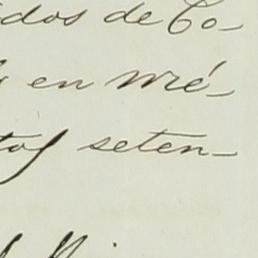 idos de Co-
en Mé-
tos seten-